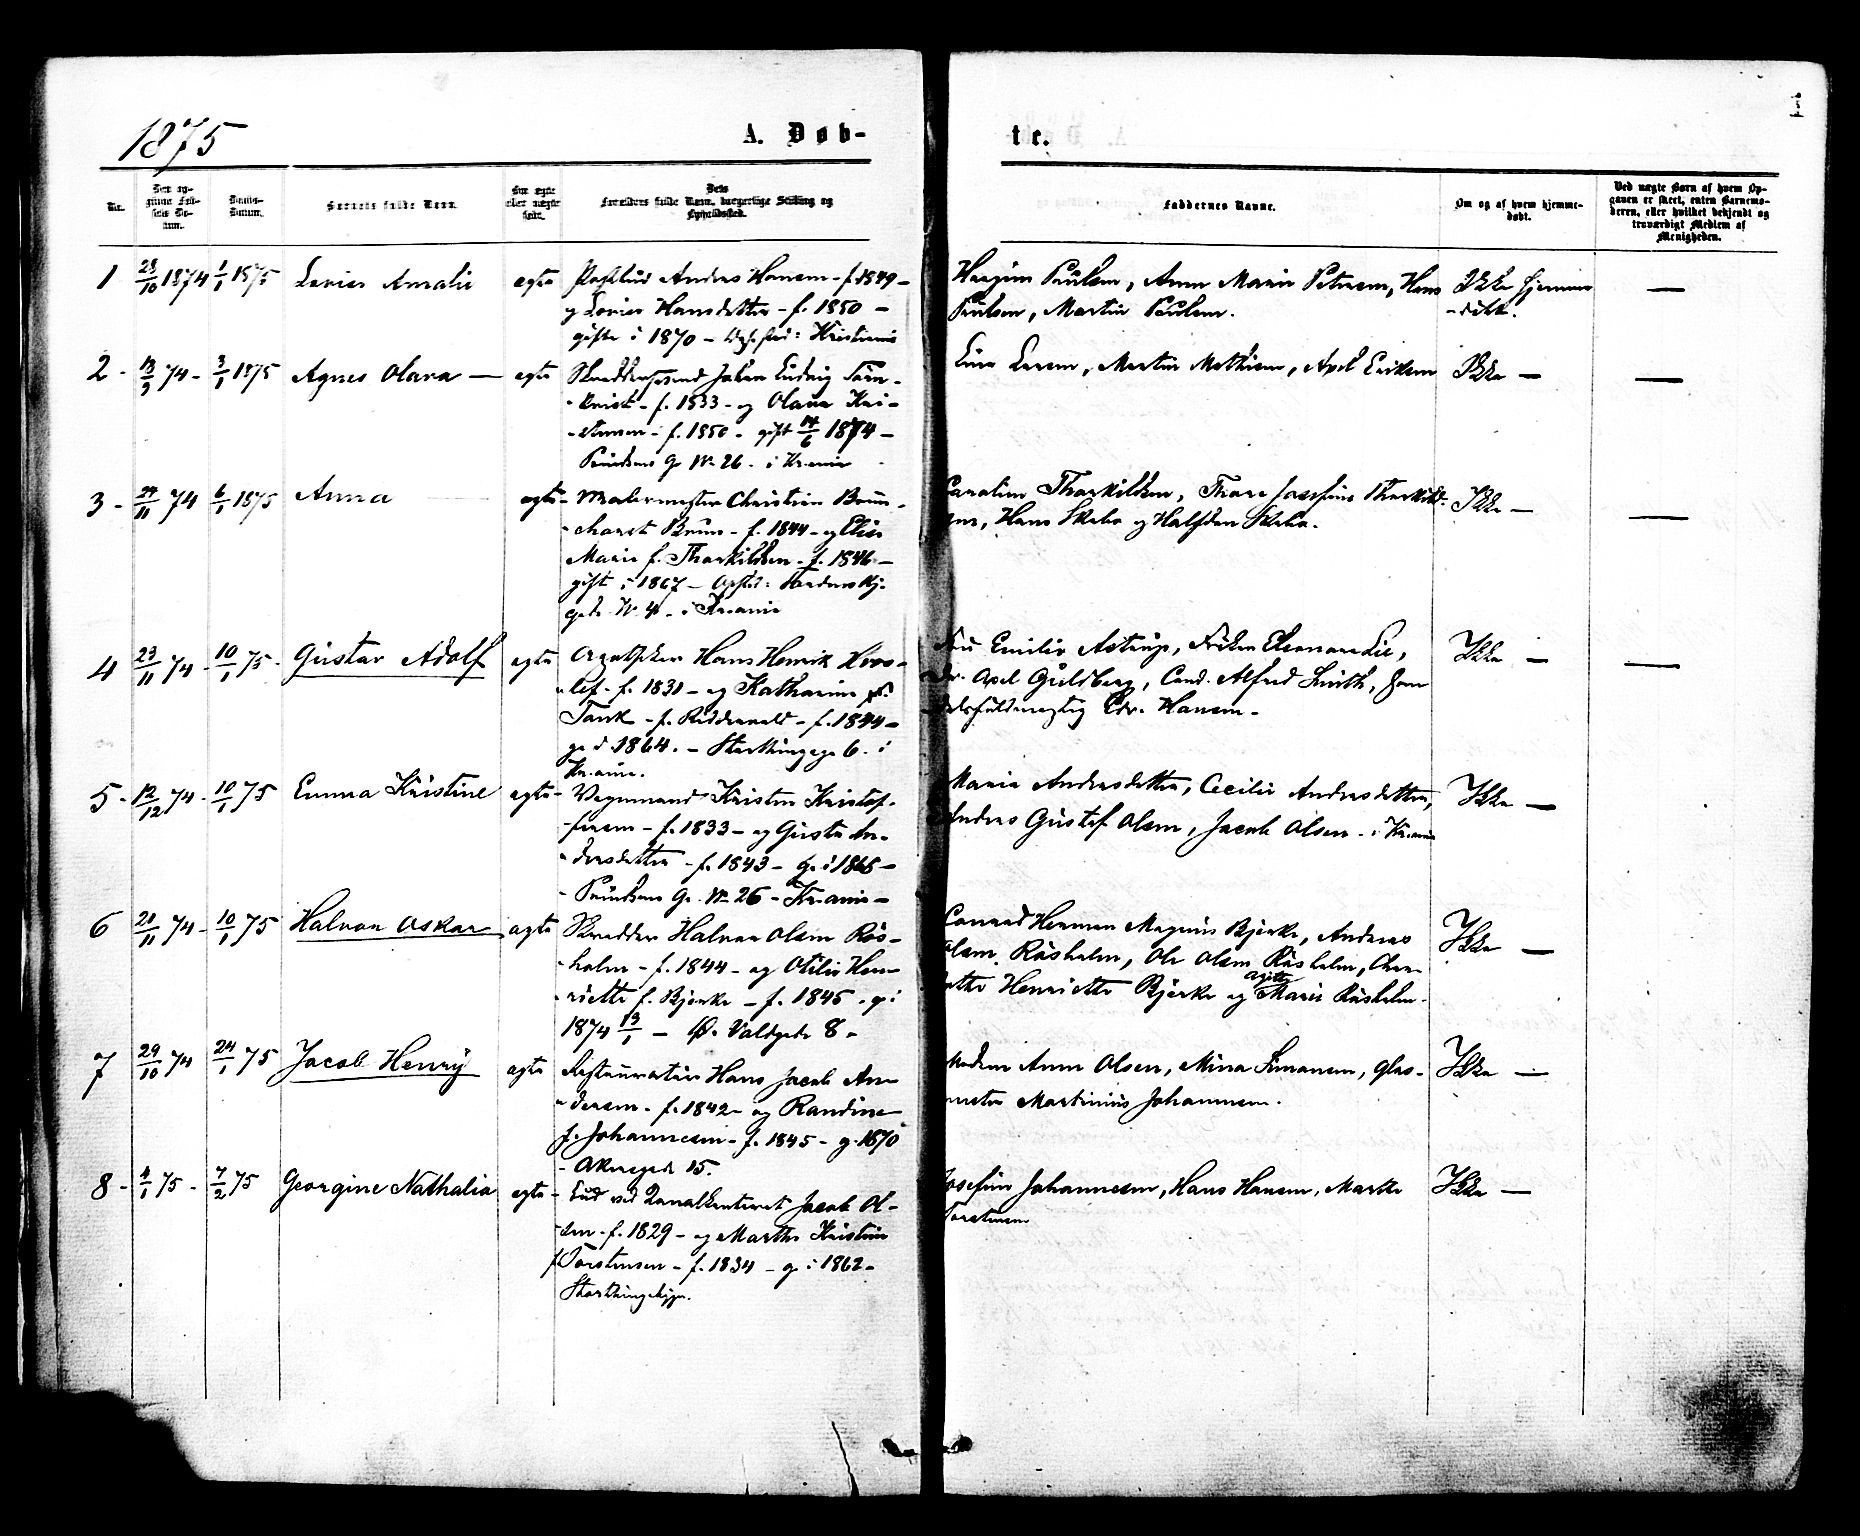 1875
A. Døb-
te.
1
Børnets fulde Navn.
Faddernes Navne.
Om og af hvem hjemme-
døbt.
Ved uægte Børn af hvem Op-
gaven er skeet, enten Barnemo-
deren, eller hvilket bekjendt og
troværdigt Medlem af
Menigheden.
1 28/10 1874 1/1 1875 Amalie egte Postbud Andreas Hansen - f. 1849 -
og Hansdatter - f. 1850 -
gifte i 1870 - Kristiania
Poulsen, Anna Marie Petersen, Hans
Poulsen, Martin Poulsen.
Ikke hjemme
- døbt. —
2 - 13/9 74 - 3/1 1875 Agnes Olava — egte Johan Ludvig
- kvist - f. 1833 - og Olava Kri-
- stensen - f. 1850 - gift 14/6 1874 -
Prindsens G. N. 26 - i Kr.ania
Larsen, Martin Mathisen, Axel Eriksen
Ikke — —
3 - 24/11 74 6/1 1875 Anna egte - Malermester Christian
Bruun - f. 1844 - og Elise
Marie f. Thorkildsen - f. 1846 -
gift i 1867 - Opsted: Tordenskj.
gade N. 4 - i Kr.ania
Thorkildsen, Thora Josefine Thorkild-
Hans Skebo og Halfdan Skebo.
Ikke — —
4 23/11 74 - 10/1 75 - Gustav Adolf egte Apotheker Hans Henrik
- lef - f. 1831 - og Katharina
Tank - f. Ridderwold - f. 1844 -
g. i 1864. - Storthingsg. 6. i
Kr.ania.
Fru Emilie Astrup, Frøken Eleonora Lie,
Dr. Axel Guldberg, Cand. Alfred Smith, Han
delsfuldmægtig Edv. Hansen -
Ikke — —
5 - 12/12 74 - 10/1 75 Emma Kristine egte - Vognmand Kristen Kristof-
- fersen - f. 1833 - og Gusta An-
- dersdatter - f. 1843 - g. i 1868 -
- Prindsens G. N. 26 - Kr.ania -
Maria Andersdatter, Cecilie Andersdatter,
Anders Gustaf Olsen, Jacob Olsen - i Kr.ania
Ikke —
6 21/11 74 - 10/1 75 Halvor Oskar egte Skrædder Halvor Olsen Rös-
- holm - f. 1844 - og Otilie Hen-
- riette f. Bjerke - f. 1845 - g. i
1874 13/1 - Ø. Voldgade 8 -
Conrad Herman Magnus Bjerke, Andreas
Olsen Rösholm, Ole Olsen Rösholm,
Henriette Bjerke og Marie Rösholm.
Ikke —
7 29/10 74 24/1 75 Jacob Henry egte Restauratør Hans Jacob An-
- dersen - f. 1842 - og Randine
f. Johannesen - f. 1845 - g. 1870
- Akersgade 15.
Madam Anna Olsen, Mina Simonsen, Glas-
mester Martinius Johannesen.
Ikke —
8 - 4/1 75 - 7/2 75 Georgine Nathalia egte - Bud ved Kanalkontoret Jacob Ol-
- sen - f. 1829 - og Marthe Kristine
f. Torstensen - f. 1834 - g. i 1862 -
Storthingsbygn.
Josefine Johannesen, Hans Hansen, Marthe
Torstensen
Ikke —